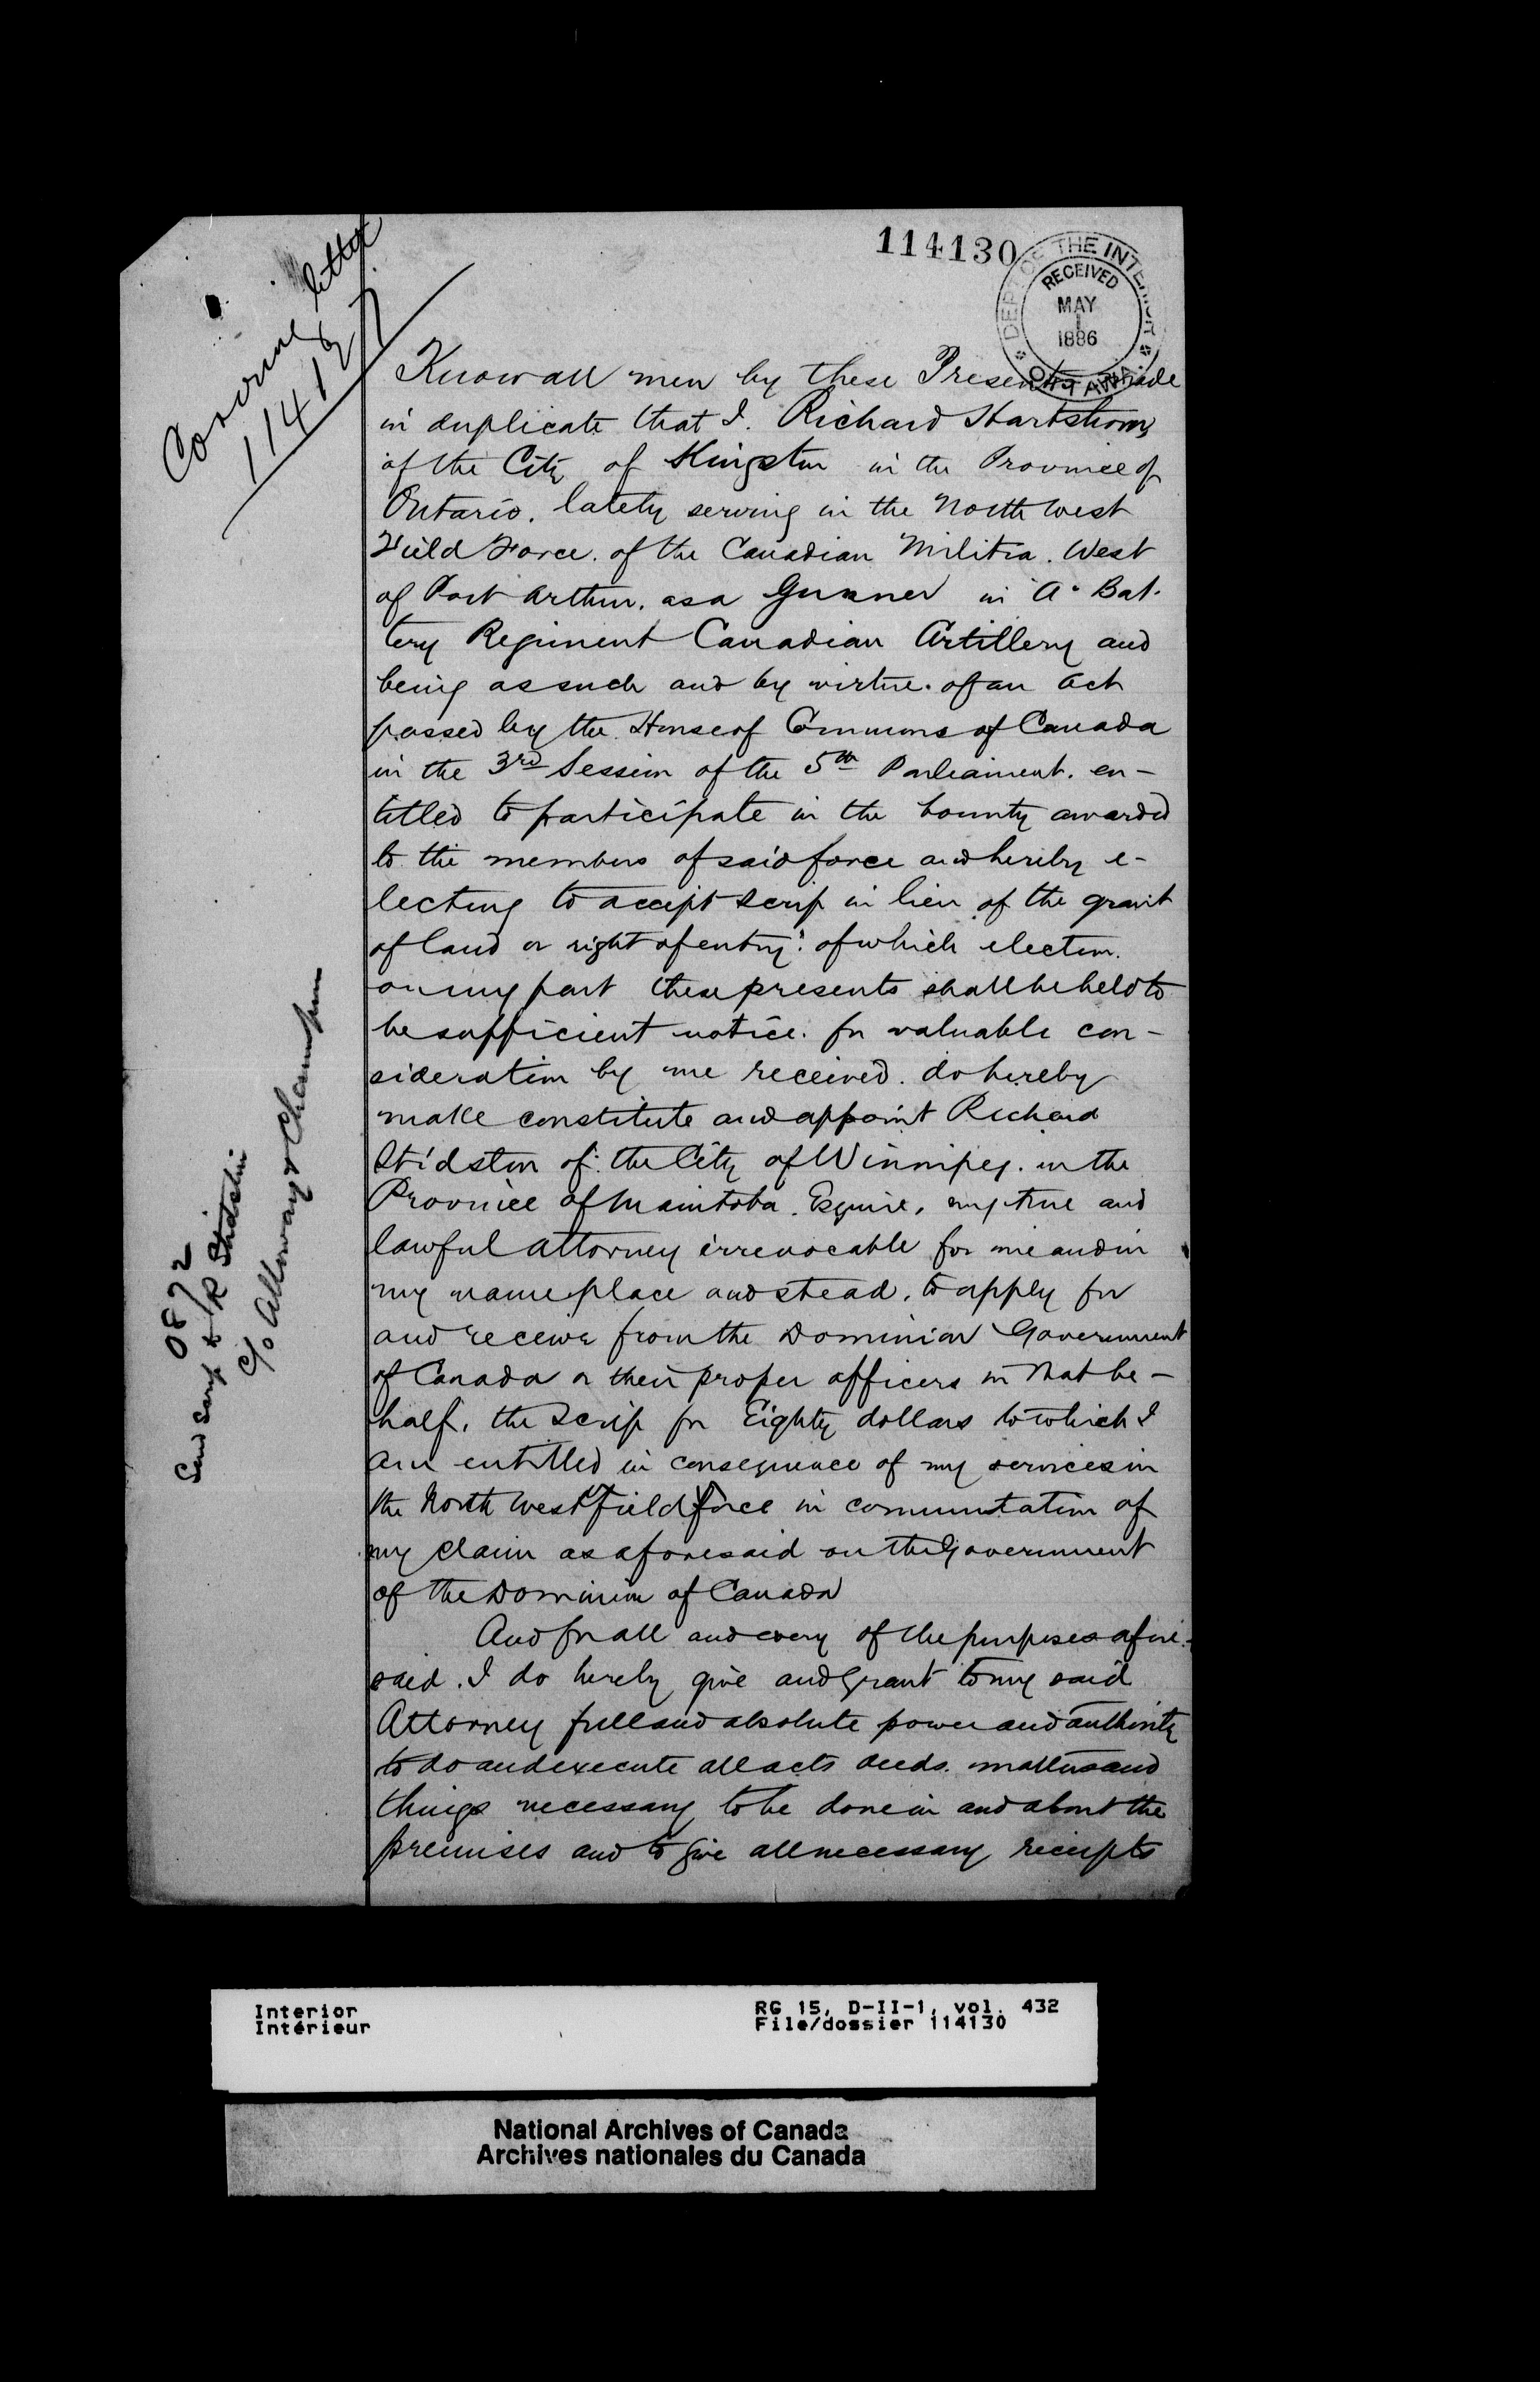 114130
DEPT OF THE INTERIOR
RECEIVED
MAY
1
1886
OTTAWA
Covering letter
Know all men by these Presents made
in duplicate that I. Richard Hartstrom
of the City of Kingston in the Province of
Ontario. lately serving in the North West
Field Force. of the Canadian Militia. West
of Port Arthur. as a Gunner in "A" Bat-
tery Regiment Canadian Artillery and
being as such and by virtue. of an Act
passed by the House of Commons of Canada
in the 3rd Session of the 5th Parliament. en-
titled to participate in the bounty awarded
to the members of said force and hereby e-
lecting to accept scrip in lieu of the grant
of land or right of entry: of which election.
on my part these presents shall be held to
be sufficient notice. for valuable con-
sideration by me received. do hereby
make constitute and appoint Richard
Stidston of the City of Winnipeg. in the
Province of Manitoba. Esquire, my true and
lawful attorney irrevocable for me and in
my name place and stead, to apply for
and receive from the Dominion Government
of Canada or their proper officers in that be-
half, the scrip for Eighty dollars to which I
am entitled in consequence of my services in
the North West Field Force in commutation of
my claim as aforesaid on the Government
of the Dominion of Canada
And for all and every of the purposes afore-
said. I do hereby give and grant to my said
Attorney full and absolute power and authority
to do and execute all acts deeds. matters and
things necessary to be done in and about the
premises and to give all necessary receipts
0872
Send scrip to R Stidston
c/o Alloway & Champion
Interior
Intérieur
RG 15, D-II-1, vol. 432
File/dossier 114130
National Archives of Canada
Archives nationales du Canada